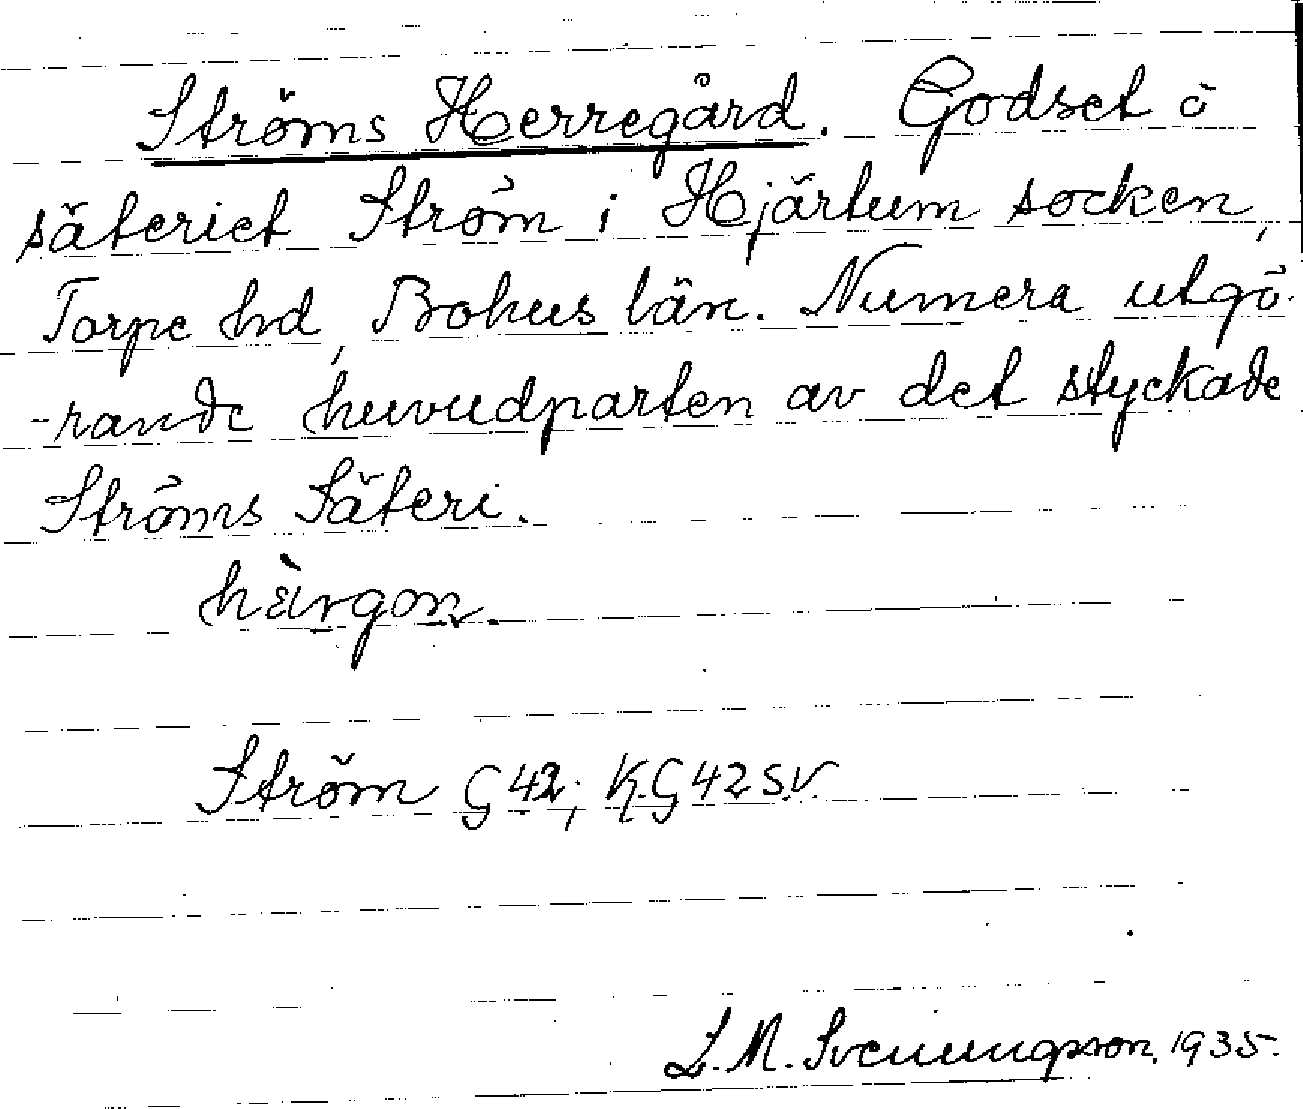 Ströms Herregård. Godset o
säteriet Ström i Hjärtum socken,
Torpe hd, Bohus län. Numera utgö-
-rande huvudparten av det styckade
Ströms Säteri.
hàrgon.
Ström G42; KG42SV.
L. M. Svenungsson, 1935.